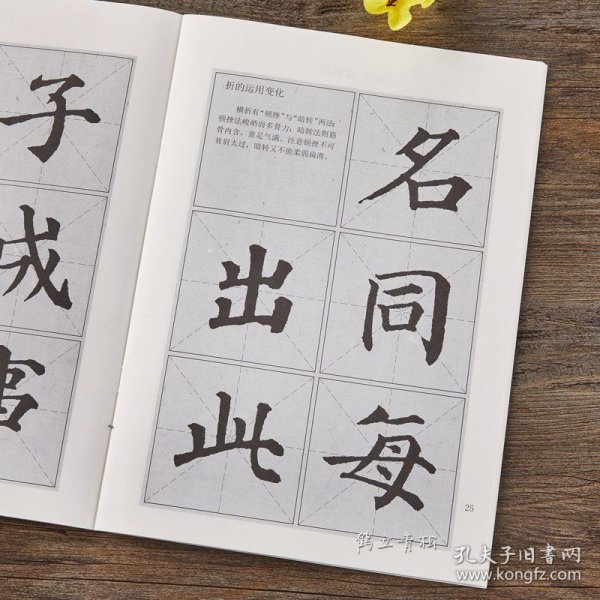 折的运用变化
横折有“顿挫”与“暗转”两法，
顿挫法峻峭而多骨力；暗转法则筋
骨内含，意足气满。注意顿挫不可
耸肩太过，暗转又不能柔弱扁滑。
名
同
每
出
此
子
25
鹤立青松
孔夫子旧书网
www.kongfz.com